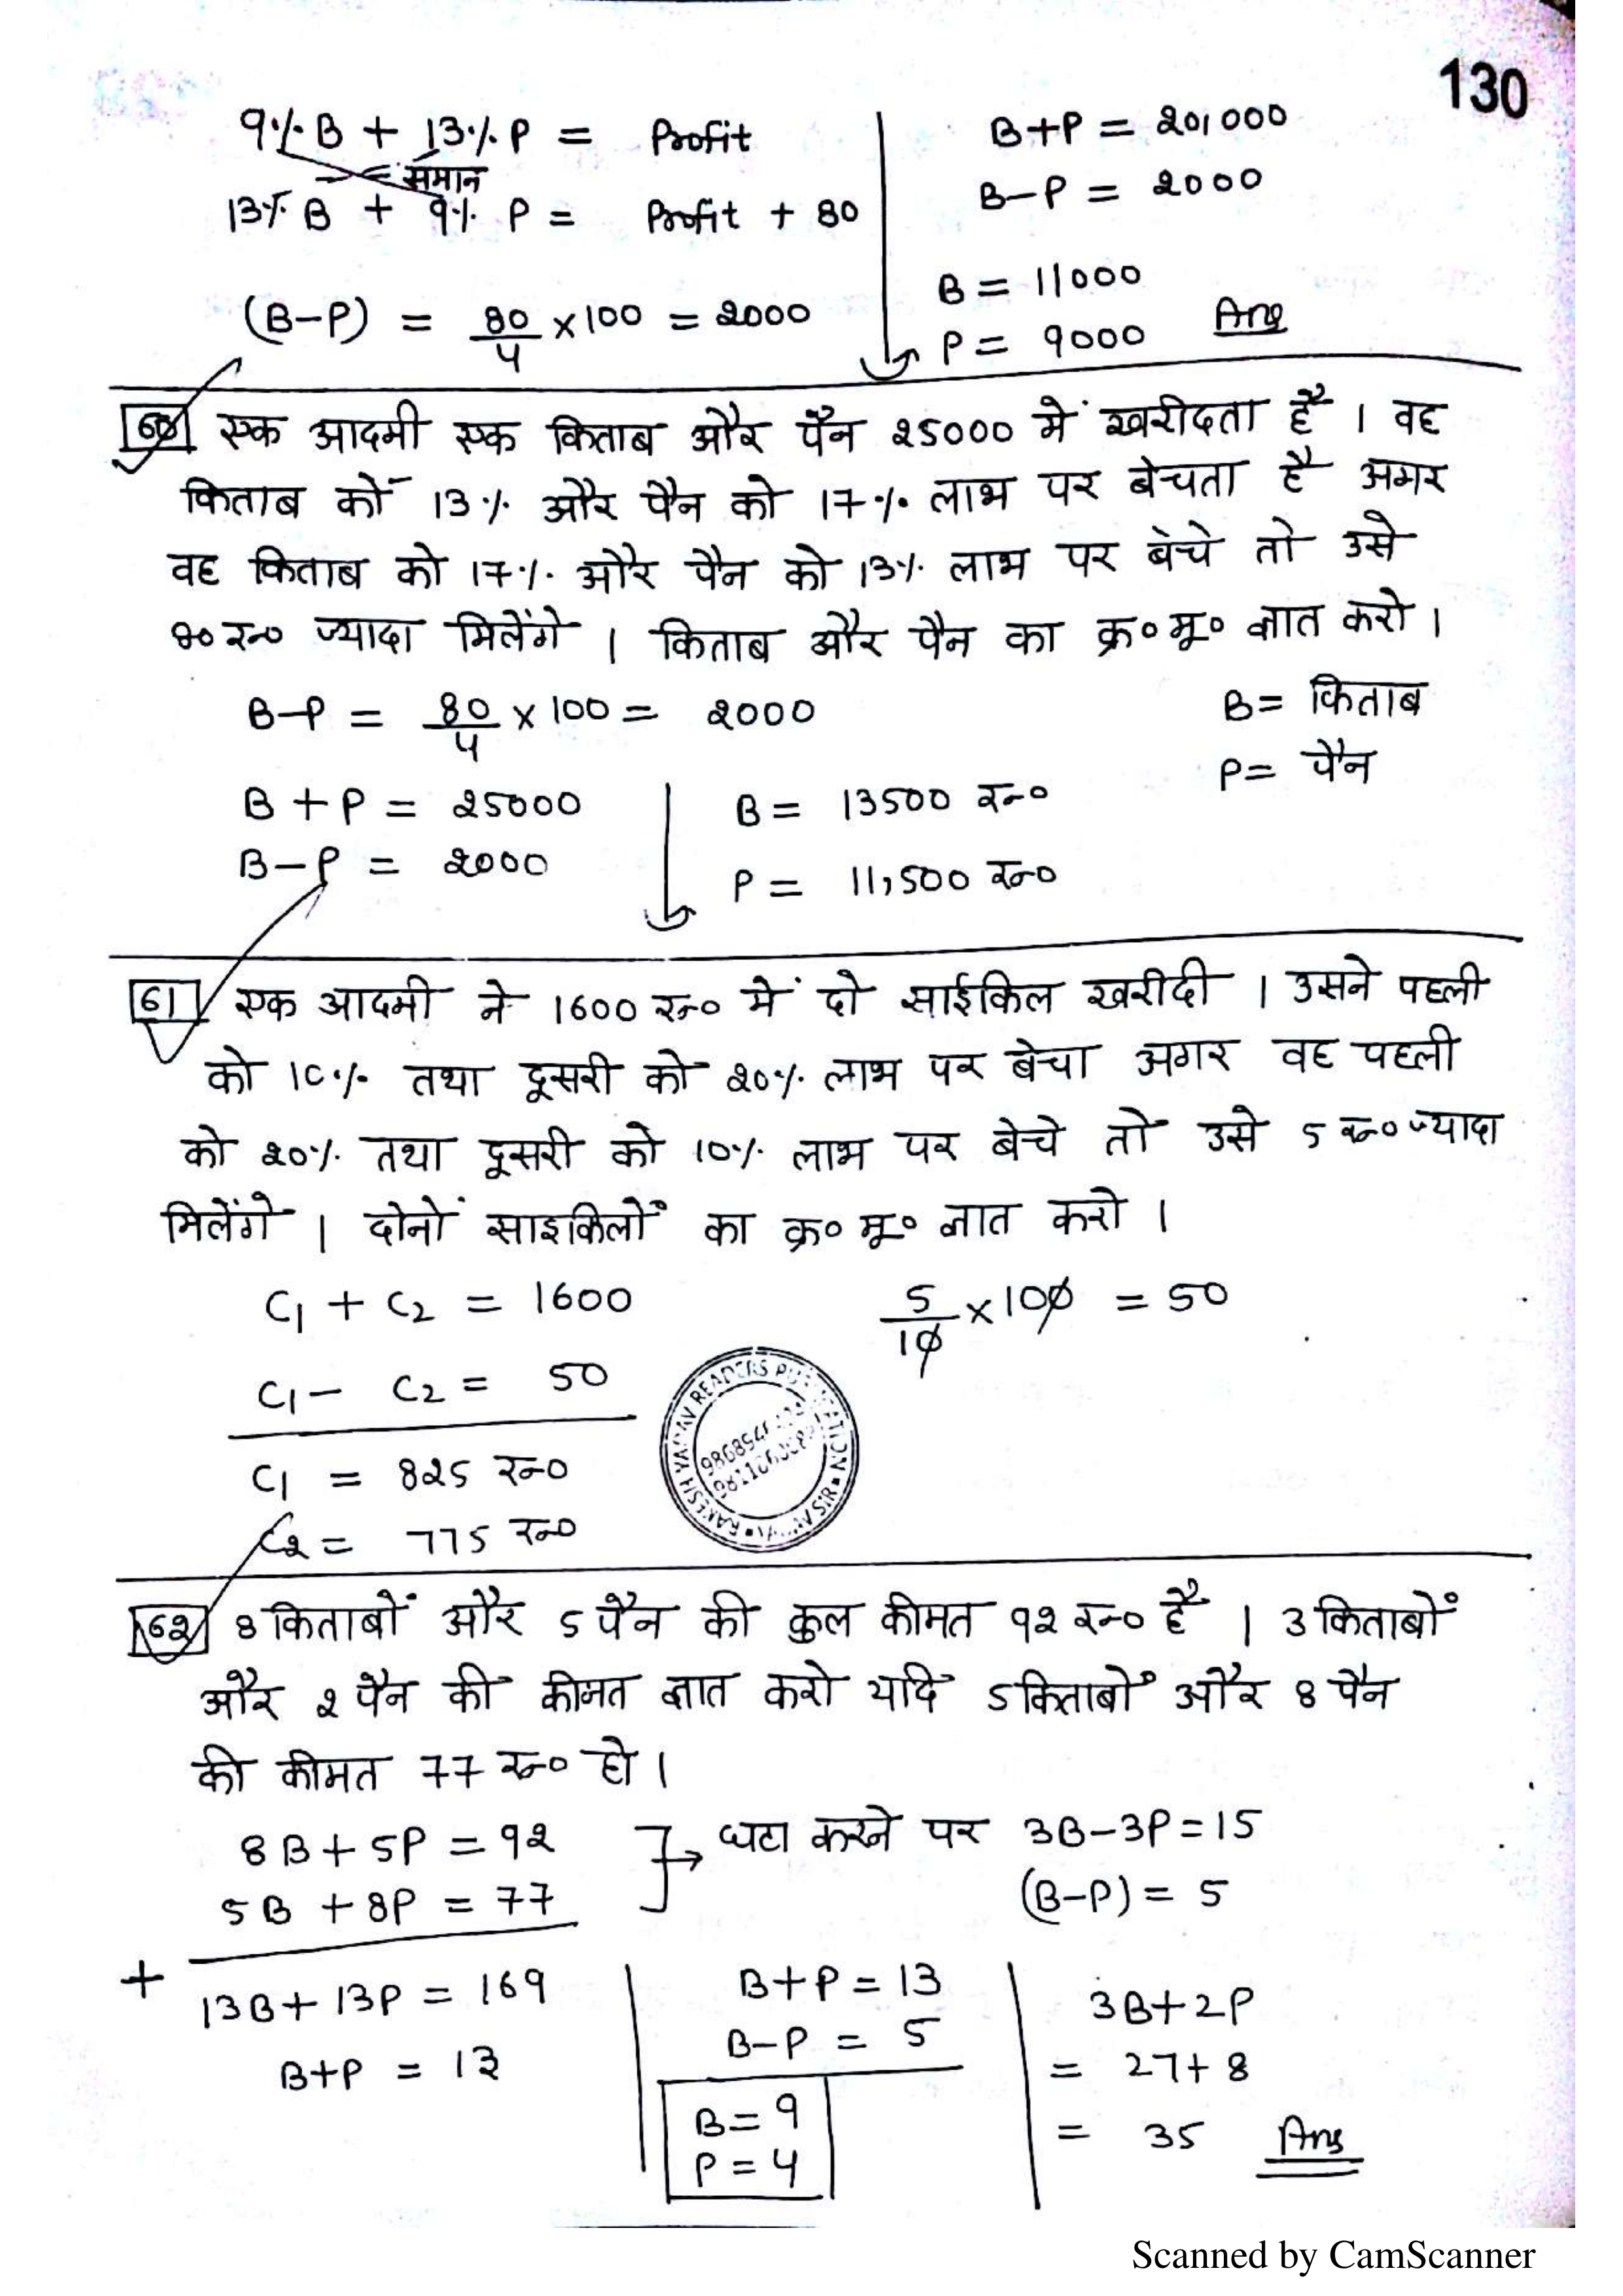 130
9% B + 13% P = Profit
समान
13% B + 9% P = Profit + 80
(B-P) = 80/4 × 100 = 2000
B+P = 20,000
B-P = 2000
B = 11000
P = 9000 Ans
60 एक आदमी एक किताब और पैन 25000 में खरीदता है । वह
किताब को 13% और पैन को 17% लाभ पर बेचता है अगर
वह किताब को 17% और पैन को 13% लाभ पर बेचे तो उसे
80 रु० ज्यादा मिलेंगे । किताब और पैन का क्र० मू० ज्ञात करो ।
B-P = 80/4 × 100 = 2000
B = किताब
P = पैन
B + P = 25000
B-P = 2000
B = 13500 रु०
P = 11,500 रु०
61 एक आदमी ने 1600 रु० में दो साईकिल खरीदी । उसने पहली
को 10% तथा दूसरी को 20% लाभ पर बेचा अगर वह पहली
को 20% तथा दूसरी को 10% लाभ पर बेचे तो उसे 5 रु० ज्यादा
मिलेंगे । दोनों साइकिलों का क्र० मू० ज्ञात करो ।
C1 + C2 = 1600
5/10 × 100 = 50
C1 - C2 = 50
C1 = 825 रु०
C2 = 775 रु०
RAKESH YADAV READERS PUBLICATION
62 8 किताबों और 5 पैन की कुल कीमत 92 रु० है । 3 किताबों
और 2 पैन की कीमत ज्ञात करो यदि 5 किताबों और 8 पैन
की कीमत 77 रु० हो ।
8B + 5P = 92
5B + 8P = 77
घटा करने पर 3B-3P=15
(B-P) = 5
+
13B + 13P = 169
B+P = 13
B+P = 13
B-P = 5
B = 9
P = 4
3B+2P
= 27+8
= 35 Ans
Scanned by CamScanner